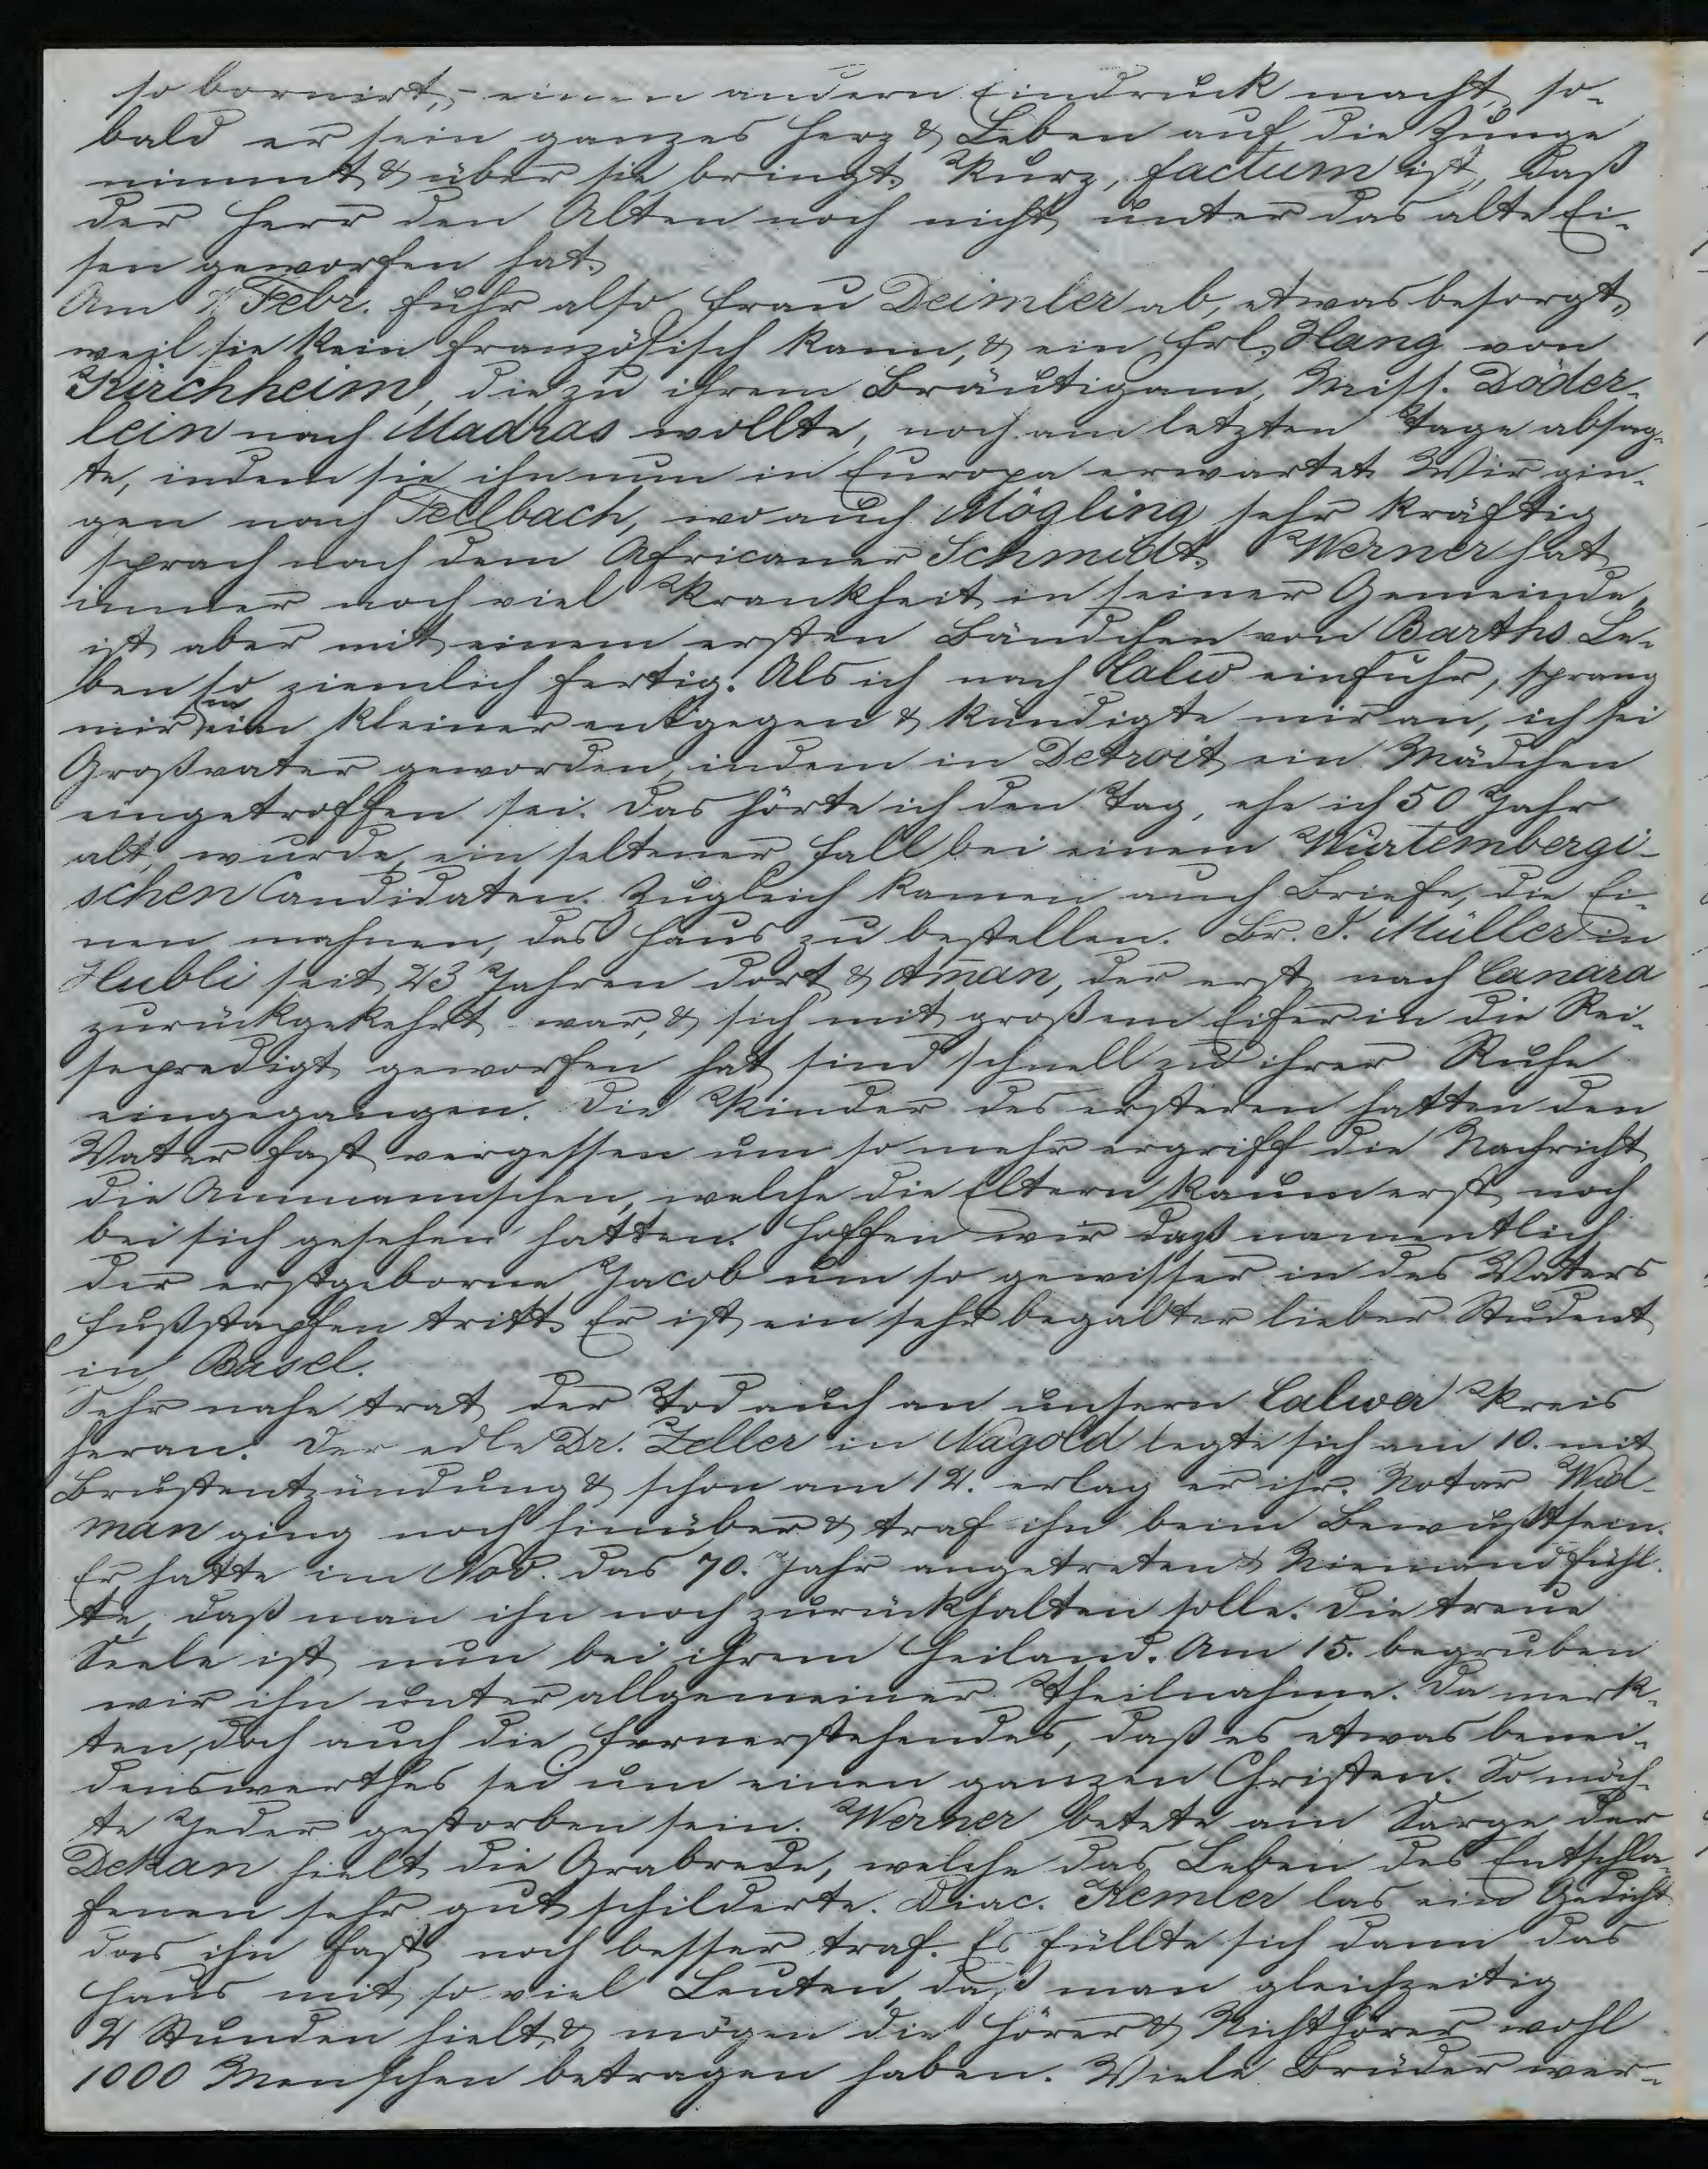 so bornirt, - einen andern Eindruck macht, so-
bald er sein ganzes Herz & Leben auf die Zunge
nimmt & über sie bringt. Kurz, factum ist, daß
der Herr den Alten noch nicht unter das alte Ei-
sen geworfen hat.
Am 1. Febr. fuhr also Frau Deimler ab, etwas besorgt,
weil sie kein Französisch kann, & ein Frl. Hang von
Kirchheim, die zu ihrem Bräutigam, Miss. Döder-
lein nach Madras wollte, noch am letzten Tage absag-
te, indem sie ihn nun in Europa erwartet. Wir gin-
gen nach Fellbach, wo auch Mögling sehr kräftig
sprach nach dem Africaner Schmidt. Werner hat
immer noch viel Krankheit in seiner Gemeinde,
ist aber mit einem ersten Bändchen von Barths Le-
ben so ziemlich fertig. Als ich nach Calw einfuhr, sprang
mir ein Kleiner entgegen & kündigte mir an, ich sei
Großvater geworden, indem in Detroit ein Mädchen
eingetroffen sei. Das hörte ich den Tag, ehe ich 50 Jahr
alt wurde, ein seltener Fall bei einem Würtembergi-
schen Candidaten. Zugleich kamen auch Briefe, die Ei-
nen mahnen, das Haus zu bestellen. Br. J. Müller in
Hubli seit 23 Jahren dort & Aman, der erst nach Canara
zurückgekehrt war, & sich mit großem Eifer in die Rei-
sepredigt geworfen hat, sind schnell zu ihrer Ruhe
eingegangen. Die Kinder des ersteren hatten den
Vater fast vergessen um so mehr ergriff die Nachricht
die Ammannschen, welche die Eltern kaum erst noch
bei sich gesehen hatten. Hoffen wir daß namentlich
der erstgeborne Jacob um so gewisser in des Vaters
Fußstapfen tritt. Er ist ein sehr begabter lieber Student
in Basel.
Sehr nahe trat der Tod auch an unsern Calwer Kreis
heran. Der edle Dr. Zeller in Nagold legte sich am 10. mit
Brustentzündung & schon am 12. erlag er ihr. Notar Wid-
man ging noch hinüber & traf ihn beim Bewußtsein.
Er hatte im Nov. das 70. Jahr angetreten & Niemand fühl-
te, daß man ihn noch zurückhalten solle. Die treue
Seele ist nun bei ihrem Heiland. Am 15. begruben
wir ihn unter allgemeiner Theilnahme. Da merk-
ten doch auch die Fernerstehenden, daß es etwas benei-
denswerthes sei um einen ganzen Christen. So möch-
te Jeder gestorben sein. Werner betete am Sarge der
Dekan hielt die Grabrede, welche das Leben des Entschla-
fenen sehr gut schilderte. Diac. Kemler las ein Gedicht
das ihn fast noch besser traf. Es füllte sich dann das
Haus mit so viel Leuten, daß man gleichzeitig
2 Stunden hielt, & mögen die Hörer & Nichthörer wohl
1000 Menschen betragen haben. Viele Brüder wer-